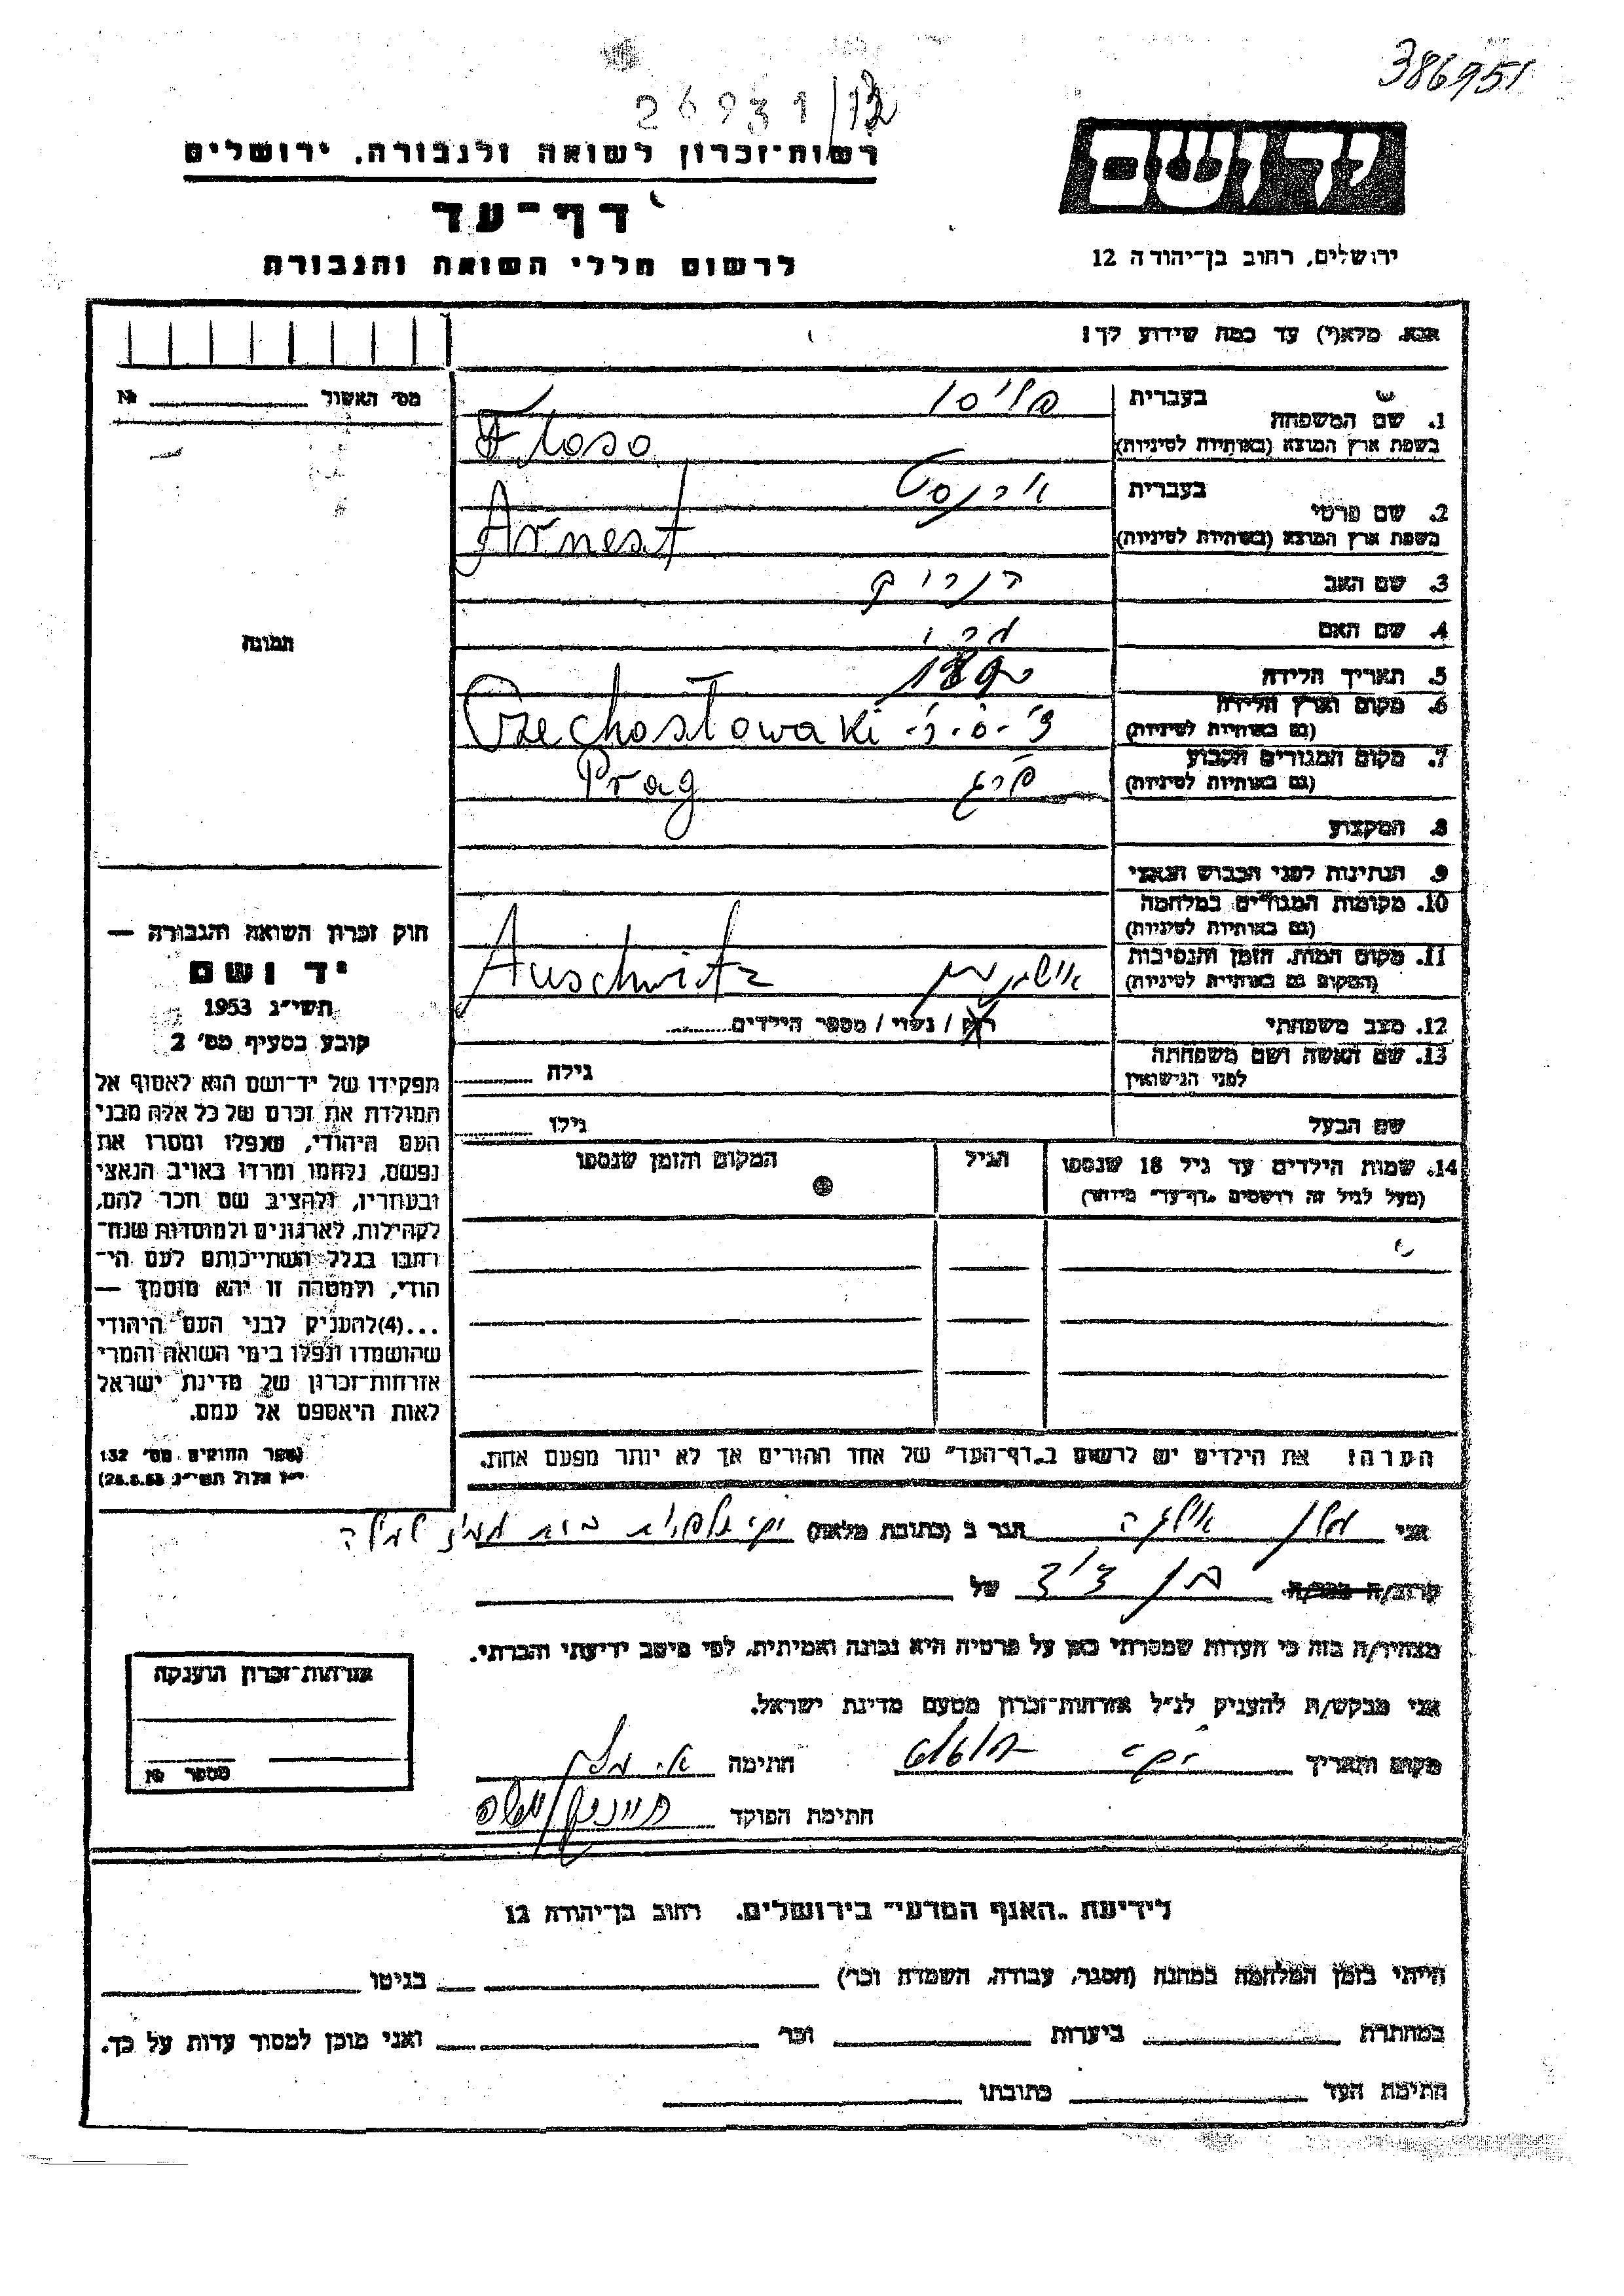 386951
26931/12
רשות־זכרון לשואה ולגבורה, ירושלים
יד ושם
דף־עד
לרשום חללי השואה והגבורה
ירושלים, רחוב בן־יהודה 12
אנא, מלא(י) עד כמה שידוע לך!
מס׳ האשול № 
1. שם המשפחה בעברית
בשפת ארץ המוצא (באותיות לטיניות) Floso
2. שם פרטי בעברית ארנסט
בשפת ארץ המוצא (באותיות לטיניות) Arnest
3. שם האב
4. שם האם
5. תאריך הלידה 1890
6. מקום וארץ הלידה
(גם באותיות לטיניות) צ׳.ס.ר. Czechostowaki
7. מקום המגורים הקבוע
(גם באותיות לטיניות) פרג Prag
8. המקצוע
9. הנתינות לפני הכבוש הנאצי
10. מקומות המגורים במלחמה
(גם באותיות לטיניות)
11. מקום המות, הזמן והנסיבות
(המקום גם באותיות לטיניות) Auschwitz
12. מצב משפחתי רוק / נשוי / מספר הילדים
13. שם האשה ושם משפחתה
לפני הנישואין גילה
שם הבעל גילו
תמונה
חוק זכרון השואה והגבורה —
יד ושם
תשי״ג 1953
קובע בסעיף מס׳ 2
תפקידו של יד־ושם הוא לאסוף אל
המולדת את זכרם של כל אלה מבני
העם היהודי, שנפלו ומסרו את
נפשם, נלחמו ומרדו באויב הנאצי
ובעוזריו, ולהציב שם וזכר להם,
לקהילות, לארגונים ולמוסדות שנח־
רבו בגלל השתייכותם לעם הי־
הודי, ולמטרה זו יהא מוסמך —
...(4)להעניק לבני העם היהודי
שהושמדו ונפלו בימי השואה והמרי
אזרחות־זכרון של מדינת ישראל
לאות היאספם אל עמם.
(ספר החוקים מס׳ 132
י״ז אלול תשי״ג 28.8.53)
14. שמות הילדים עד גיל 18 שנספו הגיל המקום והזמן שנספו
(מעל לגיל זה רושמים „דף־עד״ מיוחד)
הערה! את הילדים יש לרשום ב„דף־העד״ של אחד ההורים אך לא יותר מפעם אחת.
אני הגר ב (כתובת מלאה)
קרוב/ה מכר/ה בן דוד של
מצהיר/ה בזה כי העדות שמסרתי כאן על פרטיה היא נכונה ואמיתית, לפי מיטב ידיעתי והכרתי.
אני מבקש/ת להעניק לנ״ל אזרחות־זכרון מטעם מדינת ישראל.
מקום ותאריך חתימה
חתימת הפוקד
אזרחות־זכרון הוענקה
מספר №
לידיעת „האגף המדעי״ בירושלים. רחוב בן־יהודה 12
הייתי בזמן המלחמה במחנה (הסגר, עבודה, השמדה וכו׳) בגיטו
במחתרת ביערות וכו׳ ואני מוכן למסור עדות על כך.
חתימת העד כתובתו